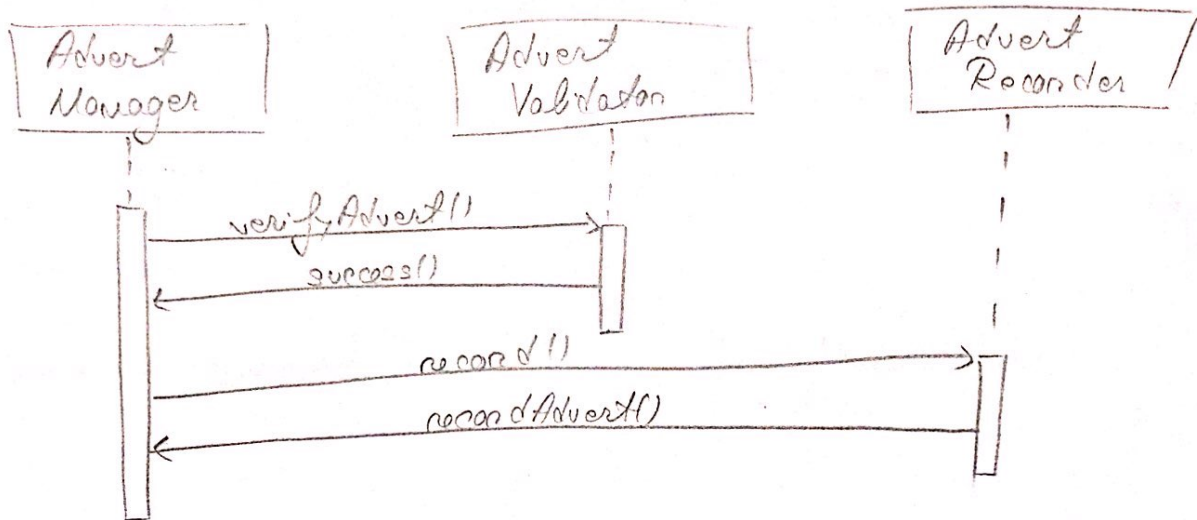 Advert
Manager
Advert
Validator
Advert
Recorder
verifyAdvert()
success()
record()
recordAdvert()